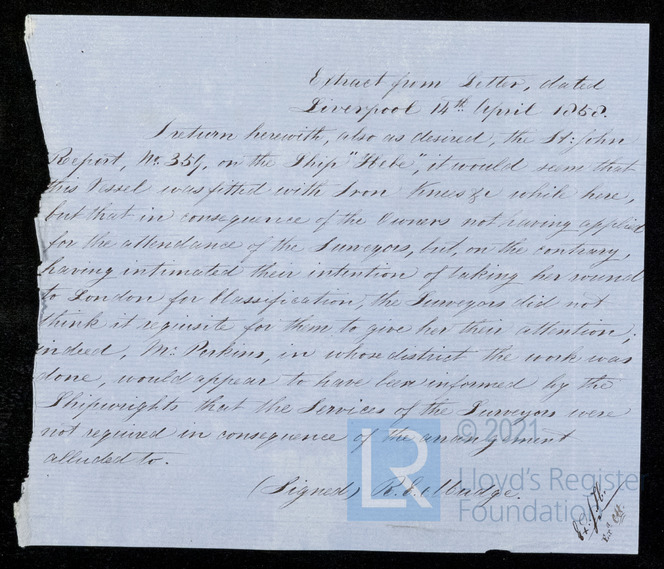 Extract from Letter, dated
Liverpool 14th April 1858.
I return herewith, also as desired, the St: John
Report, No. 357, on the Ship "Hebe", it would seem that
this Vessel was fitted with Iron Knees &c while here,
but that in consequence of the Owners not having applied
for the attendance of the Surveyors, but, on the contrary,
having intimated their intention of taking her round
to London for Classification, the Surveyors did not
think it requisite for them to give her their attention;
indeed, Mr: Perkins, in whose district the work was
done, would appear to have been informed by the
Shipwrights that the Services of the Surveyors were
not required in consequence of the arrangement
alluded to.
(Signed) R. S. Mudge.
© 2021
LR
Lloyd's Registe
Foundation